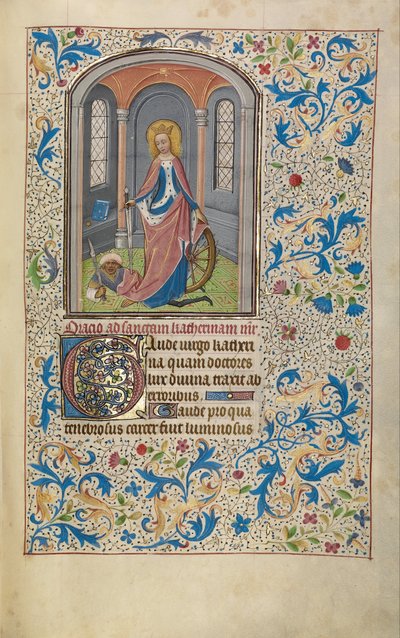 Oracio ad sanctam katherinam vir
Gaude uirgo katheri
na quam doctores
lux diuina traxit ab
erroribus
Gaude pro qua
tenebrosus carcer fuit luminosus